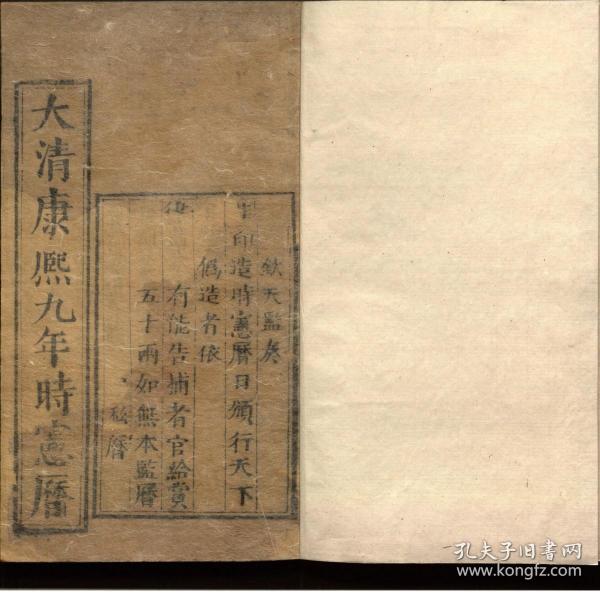 大清康熙九年時憲曆
欽天監奏
印造時憲曆日頒行天下
偽造者依
有能告捕者官給賞
五十兩如無本監曆
私曆
孔夫子旧书网
www.kongfz.com